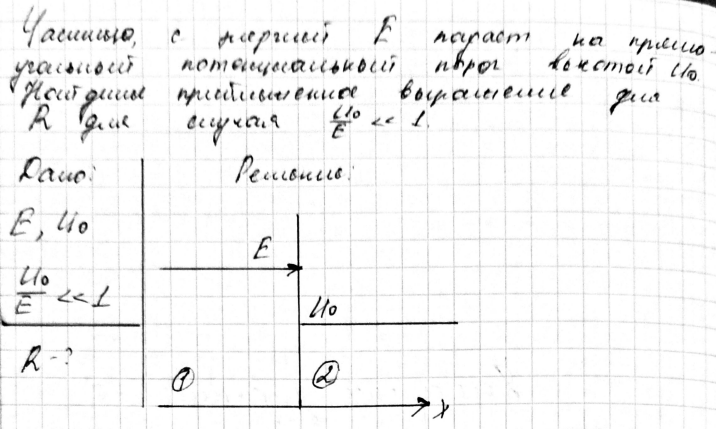 Частица, с энергией E падает на прямо-
угольный потенциальный порог высотой U₀.
Найдите приближенное выражение для
R для случая U₀/E << 1.
Дано:
Решение:
E, U₀
U₀/E << 1
R - ?
E
U₀
①
②
x